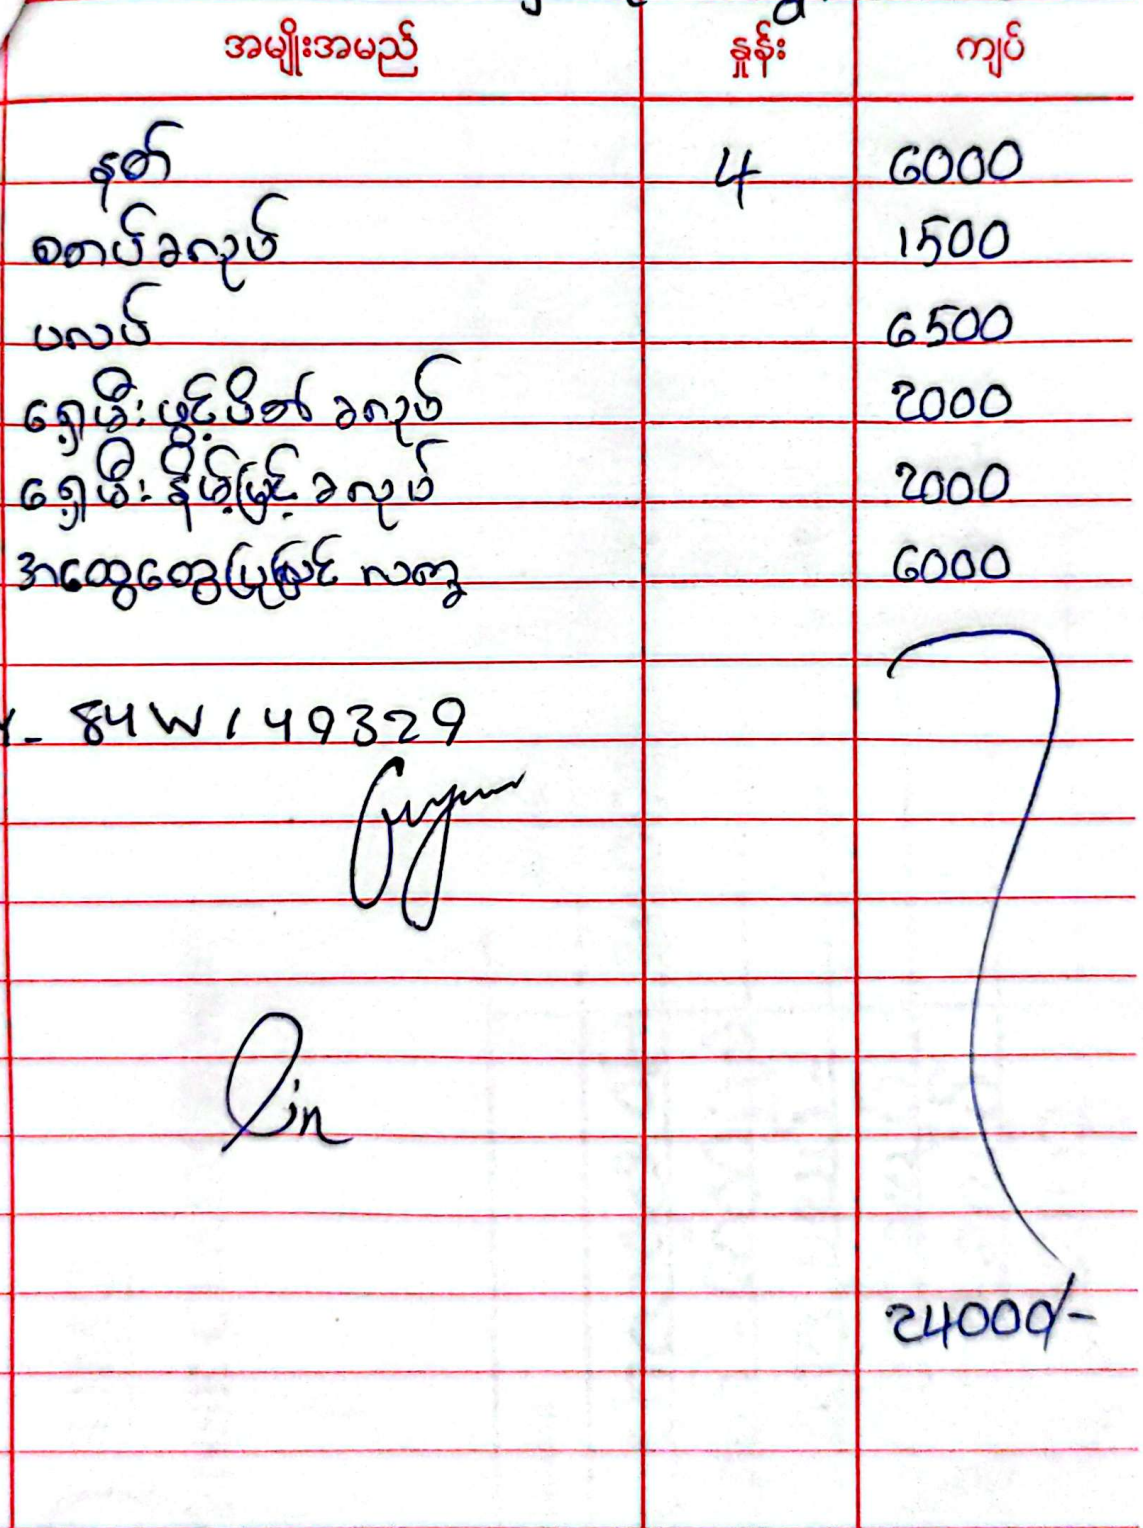 အမျိုးအမည် နှုန်း ကျပ်
နတ် 4 6000
စတပ်ခလုပ် 1500
ပလပ် 6500
ရှေ့မီး ဖွင့်ပိတ် ခလုပ် 2000
ရှေ့မီး နိမ့်မြင့် ခလုပ် 2000
အထွေထွေပြုပြင် လက္ခ 6000
84W 149329
Lin
24000/-